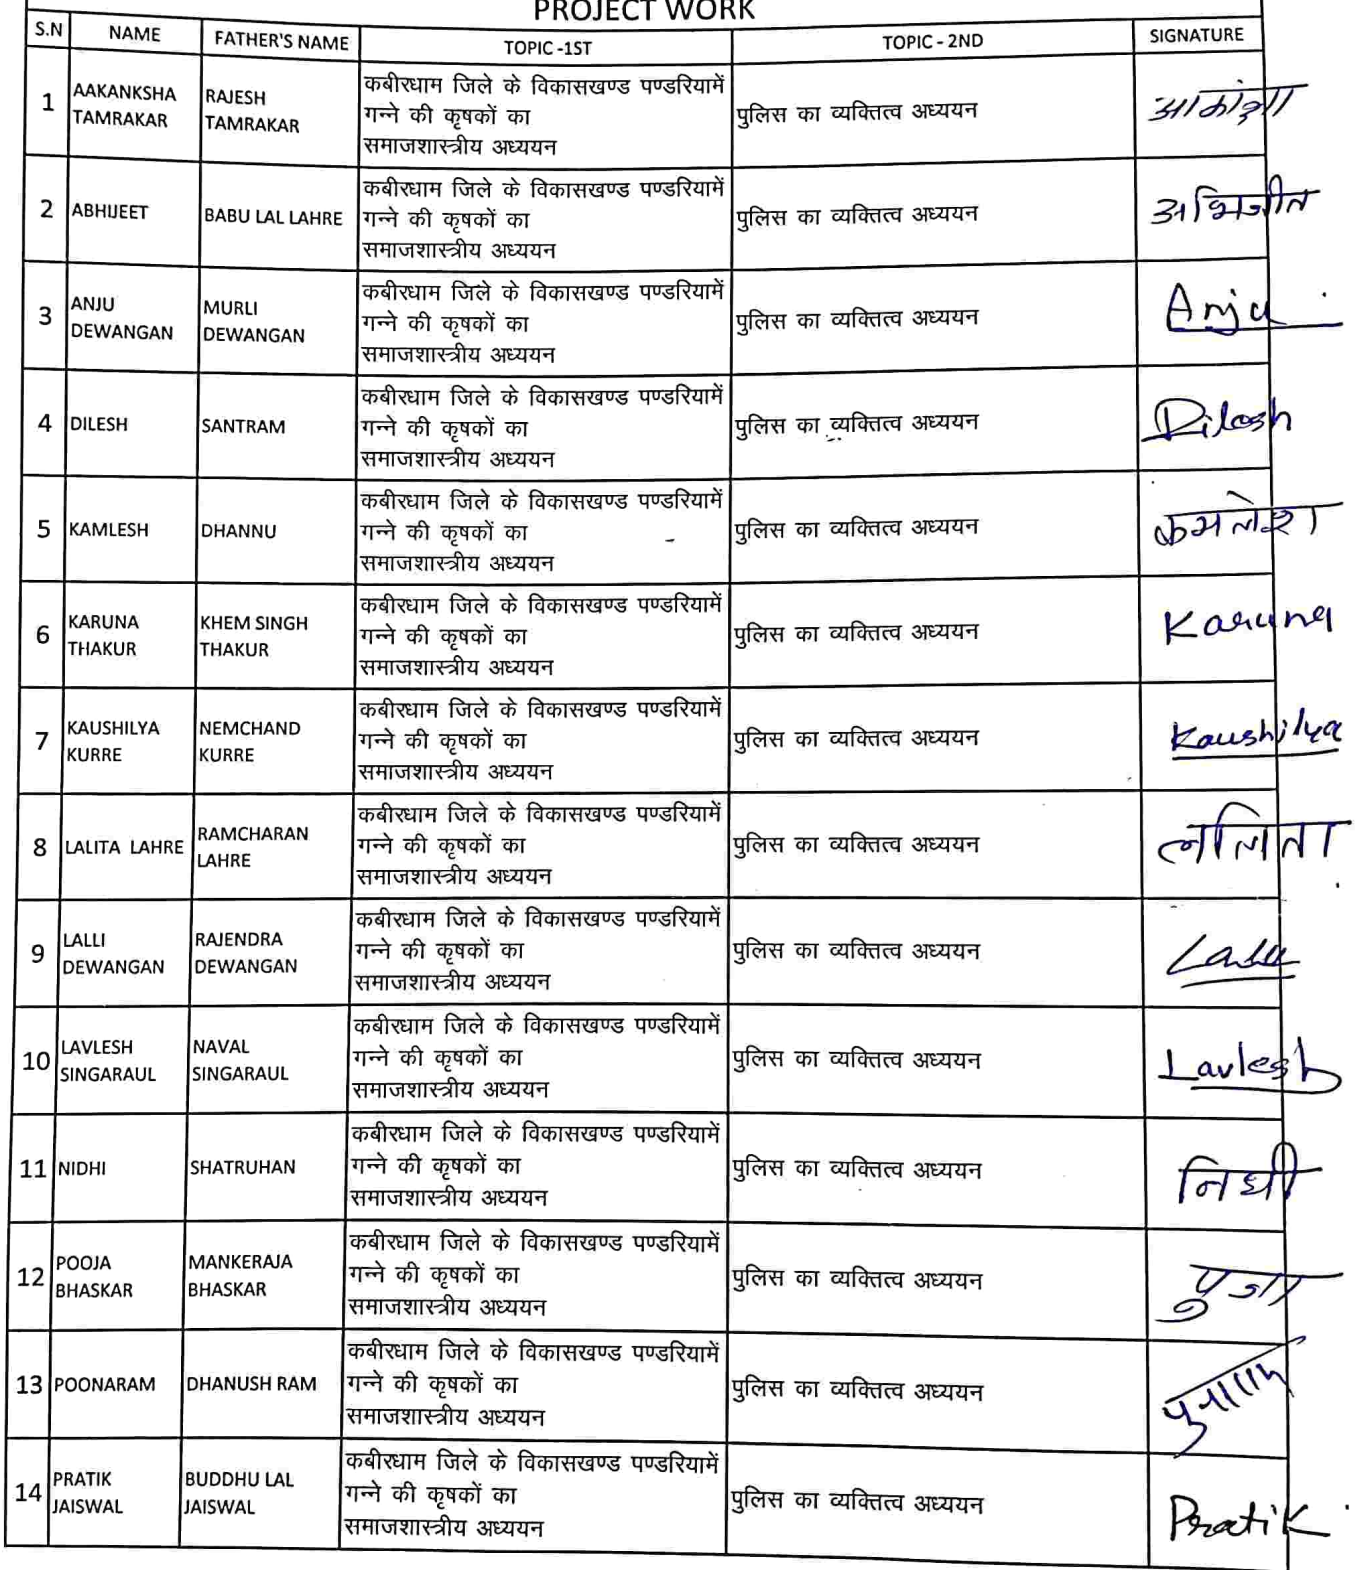 PROJECT WORK
S.N NAME FATHER'S NAME TOPIC -1ST TOPIC - 2ND SIGNATURE
1 AAKANKSHA TAMRAKAR RAJESH TAMRAKAR कबीरधाम जिले के विकासखण्ड पण्डरियामें
गन्ने की कृषकों का
समाजशास्त्रीय अध्ययन
पुलिस का व्यक्तित्व अध्ययन आकांक्षा
2 ABHIJEET BABU LAL LAHRE कबीरधाम जिले के विकासखण्ड पण्डरियामें
गन्ने की कृषकों का
समाजशास्त्रीय अध्ययन
पुलिस का व्यक्तित्व अध्ययन अभिजीत
3 ANJU DEWANGAN MURLI DEWANGAN कबीरधाम जिले के विकासखण्ड पण्डरियामें
गन्ने की कृषकों का
समाजशास्त्रीय अध्ययन
पुलिस का व्यक्तित्व अध्ययन Anju
4 DILESH SANTRAM कबीरधाम जिले के विकासखण्ड पण्डरियामें
गन्ने की कृषकों का
समाजशास्त्रीय अध्ययन
पुलिस का व्यक्तित्व अध्ययन Dilesh
5 KAMLESH DHANNU कबीरधाम जिले के विकासखण्ड पण्डरियामें
गन्ने की कृषकों का
समाजशास्त्रीय अध्ययन
पुलिस का व्यक्तित्व अध्ययन कमलेश
6 KARUNA THAKUR KHEM SINGH THAKUR कबीरधाम जिले के विकासखण्ड पण्डरियामें
गन्ने की कृषकों का
समाजशास्त्रीय अध्ययन
पुलिस का व्यक्तित्व अध्ययन Karuna
7 KAUSHILYA KURRE NEMCHAND KURRE कबीरधाम जिले के विकासखण्ड पण्डरियामें
गन्ने की कृषकों का
समाजशास्त्रीय अध्ययन
पुलिस का व्यक्तित्व अध्ययन Kaushilya
8 LALITA LAHRE RAMCHARAN LAHRE कबीरधाम जिले के विकासखण्ड पण्डरियामें
गन्ने की कृषकों का
समाजशास्त्रीय अध्ययन
पुलिस का व्यक्तित्व अध्ययन ललिता
9 LALLI DEWANGAN RAJENDRA DEWANGAN कबीरधाम जिले के विकासखण्ड पण्डरियामें
गन्ने की कृषकों का
समाजशास्त्रीय अध्ययन
पुलिस का व्यक्तित्व अध्ययन
10 LAVLESH SINGARAUL NAVAL SINGARAUL कबीरधाम जिले के विकासखण्ड पण्डरियामें
गन्ने की कृषकों का
समाजशास्त्रीय अध्ययन
पुलिस का व्यक्तित्व अध्ययन Lavlesh
11 NIDHI SHATRUHAN कबीरधाम जिले के विकासखण्ड पण्डरियामें
गन्ने की कृषकों का
समाजशास्त्रीय अध्ययन
पुलिस का व्यक्तित्व अध्ययन निधी
12 POOJA BHASKAR MANKERAJA BHASKAR कबीरधाम जिले के विकासखण्ड पण्डरियामें
गन्ने की कृषकों का
समाजशास्त्रीय अध्ययन
पुलिस का व्यक्तित्व अध्ययन पुजा
13 POONARAM DHANUSH RAM कबीरधाम जिले के विकासखण्ड पण्डरियामें
गन्ने की कृषकों का
समाजशास्त्रीय अध्ययन
पुलिस का व्यक्तित्व अध्ययन
14 PRATIK JAISWAL BUDDHU LAL JAISWAL कबीरधाम जिले के विकासखण्ड पण्डरियामें
गन्ने की कृषकों का
समाजशास्त्रीय अध्ययन
पुलिस का व्यक्तित्व अध्ययन Pratik